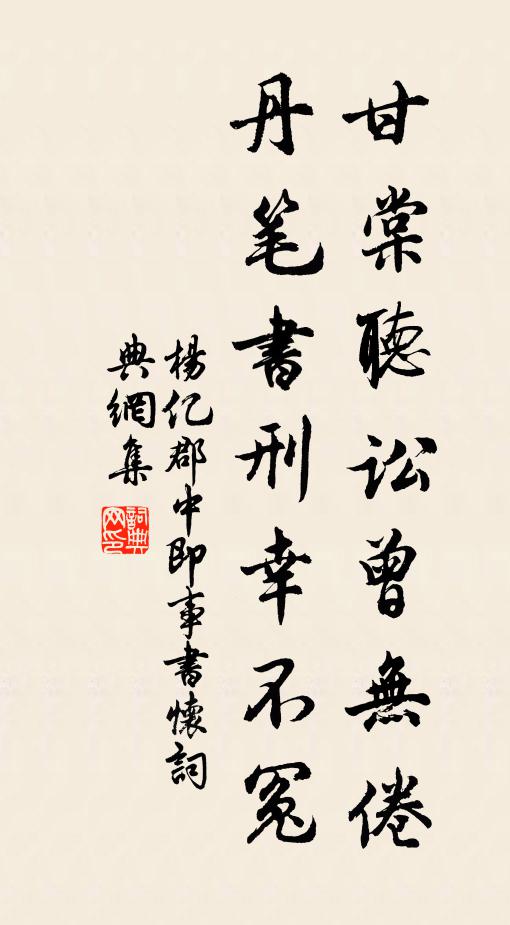 甘棠聽訟曾無倦
丹笔書刑幸不冤
楊亿郡中即事書懷詞
典網集
詞典
网印